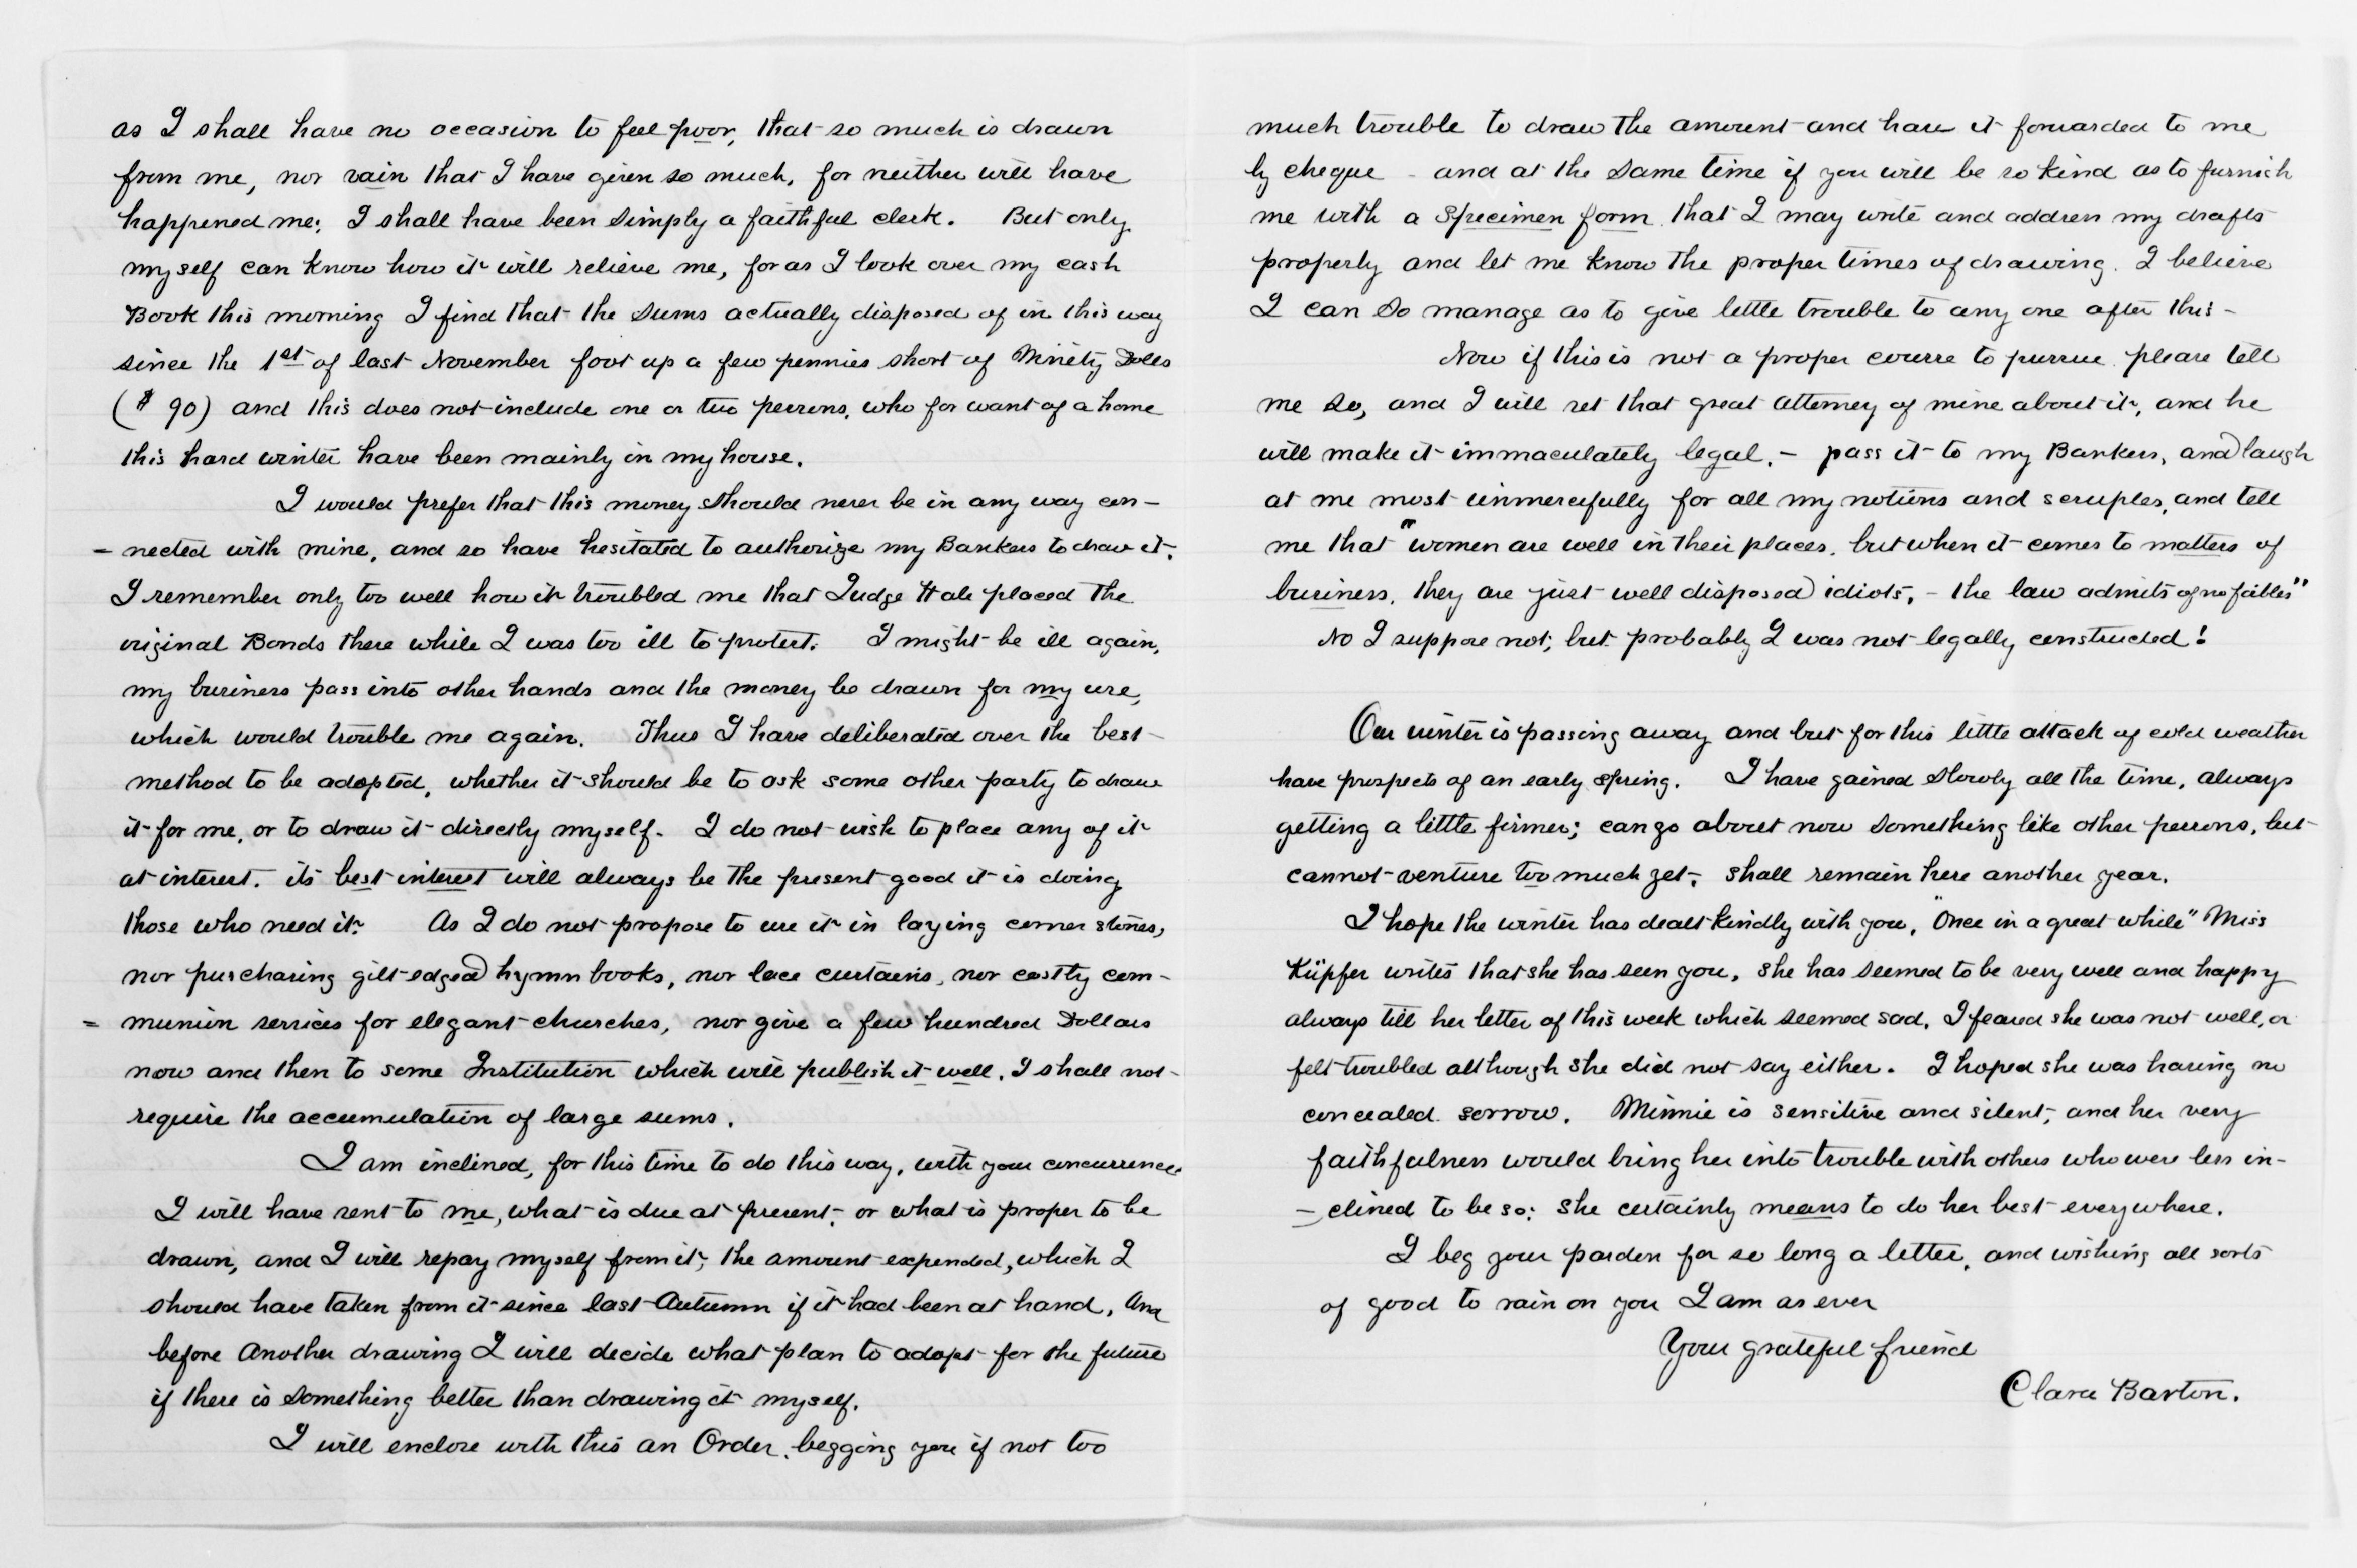 as I shall have no occasion to feel poor, that so much is drawn
from me, nor vain that I have given so much, for neither will have
happened me; I shall have been simply a faithful clerk. But only
myself can know how it will relieve me, for as I look over my cash
Book this morning I find that the sums actually disposed of in this way
since the 1st of last November foot up a few pennies short of Ninety Dolls
($ 90) and this does not include one or two persons, who for want of a home
this hard winter have been mainly in my house.
I would prefer that this money should never be in any way con-
- nected with mine, and so have hesitated to authorize my Bankers to draw it.
I remember only too well how it troubled me that Judge Hale placed the
original Bonds there while I was too ill to protest. I might be ill again,
my business pass into other hands and the money be drawn for my use,
which would trouble me again. Thus I have deliberated over the best
method to be adopted, whether it should be to ask some other party to draw
it for me, or to draw it directly myself. I do not wish to place any of it
at interest. its best interest will always be the present good it is doing
those who need it. As I do not propose to use it in laying corner stones,
nor purchasing gilt-edged hymn books, nor lace curtains, nor costly com-
= munion services for elegant churches, nor give a few hundred Dollars
now and then to some Institution which will publish it well, I shall not
require the accumulation of large sums.
I am inclined, for this time to do this way, with your concurrence
I will have sent to me, what is due at present, or what is proper to be
drawn, and I will repay myself from it, the amount expended, which I
should have taken from it since last Autumn if it had been at hand, And
before another drawing I will decide what plan to adopt for the future
if there is something better than drawing it myself.
I will enclose with this an Order, begging you if not too
much trouble to draw the amount and have it forwarded to me
by cheque - and at the same time if you will be so kind as to furnish
me with a specimen form that I may write and address my drafts
properly and let me know the proper times of drawing. I believe
I can so manage as to give little trouble to any one after this -
Now if this is not a proper course to pursue please tell
me so, and I will set that great attorney of mine about it, and he
will make it immaculately legal, - pass it to my Bankers, and laugh
at me most unmercifully for all my notions and scruples, and tell
me that "women are well in their places, but when it comes to matters of
business, they are just well disposed idiots, - the law admits of no foibles"
No I suppose not, but probably I was not legally constructed!
Our winter is passing away and but for this little attack of cold weather
have prospects of an early spring. I have gained slowly all the time, always
getting a little firmer; can go about now something like other persons, but
cannot venture too much yet, shall remain here another year.
I hope the winter has dealt kindly with you, "Once in a great while" Miss
Küpfer writes that she has seen you, she has seemed to be very well and happy
always till her letter of this week which seemed sad, I feared she was not well, or
felt troubled although she did not say either. I hoped she was having no
concealed sorrow. Minnie is sensitive and silent, and her very
faithfulness would bring her into trouble with others who were less in-
- clined to be so: She certainly means to do her best everywhere.
I beg your pardon for so long a letter, and wishing all sorts
of good to rain on you I am as ever
Your grateful friend
Clara Barton.